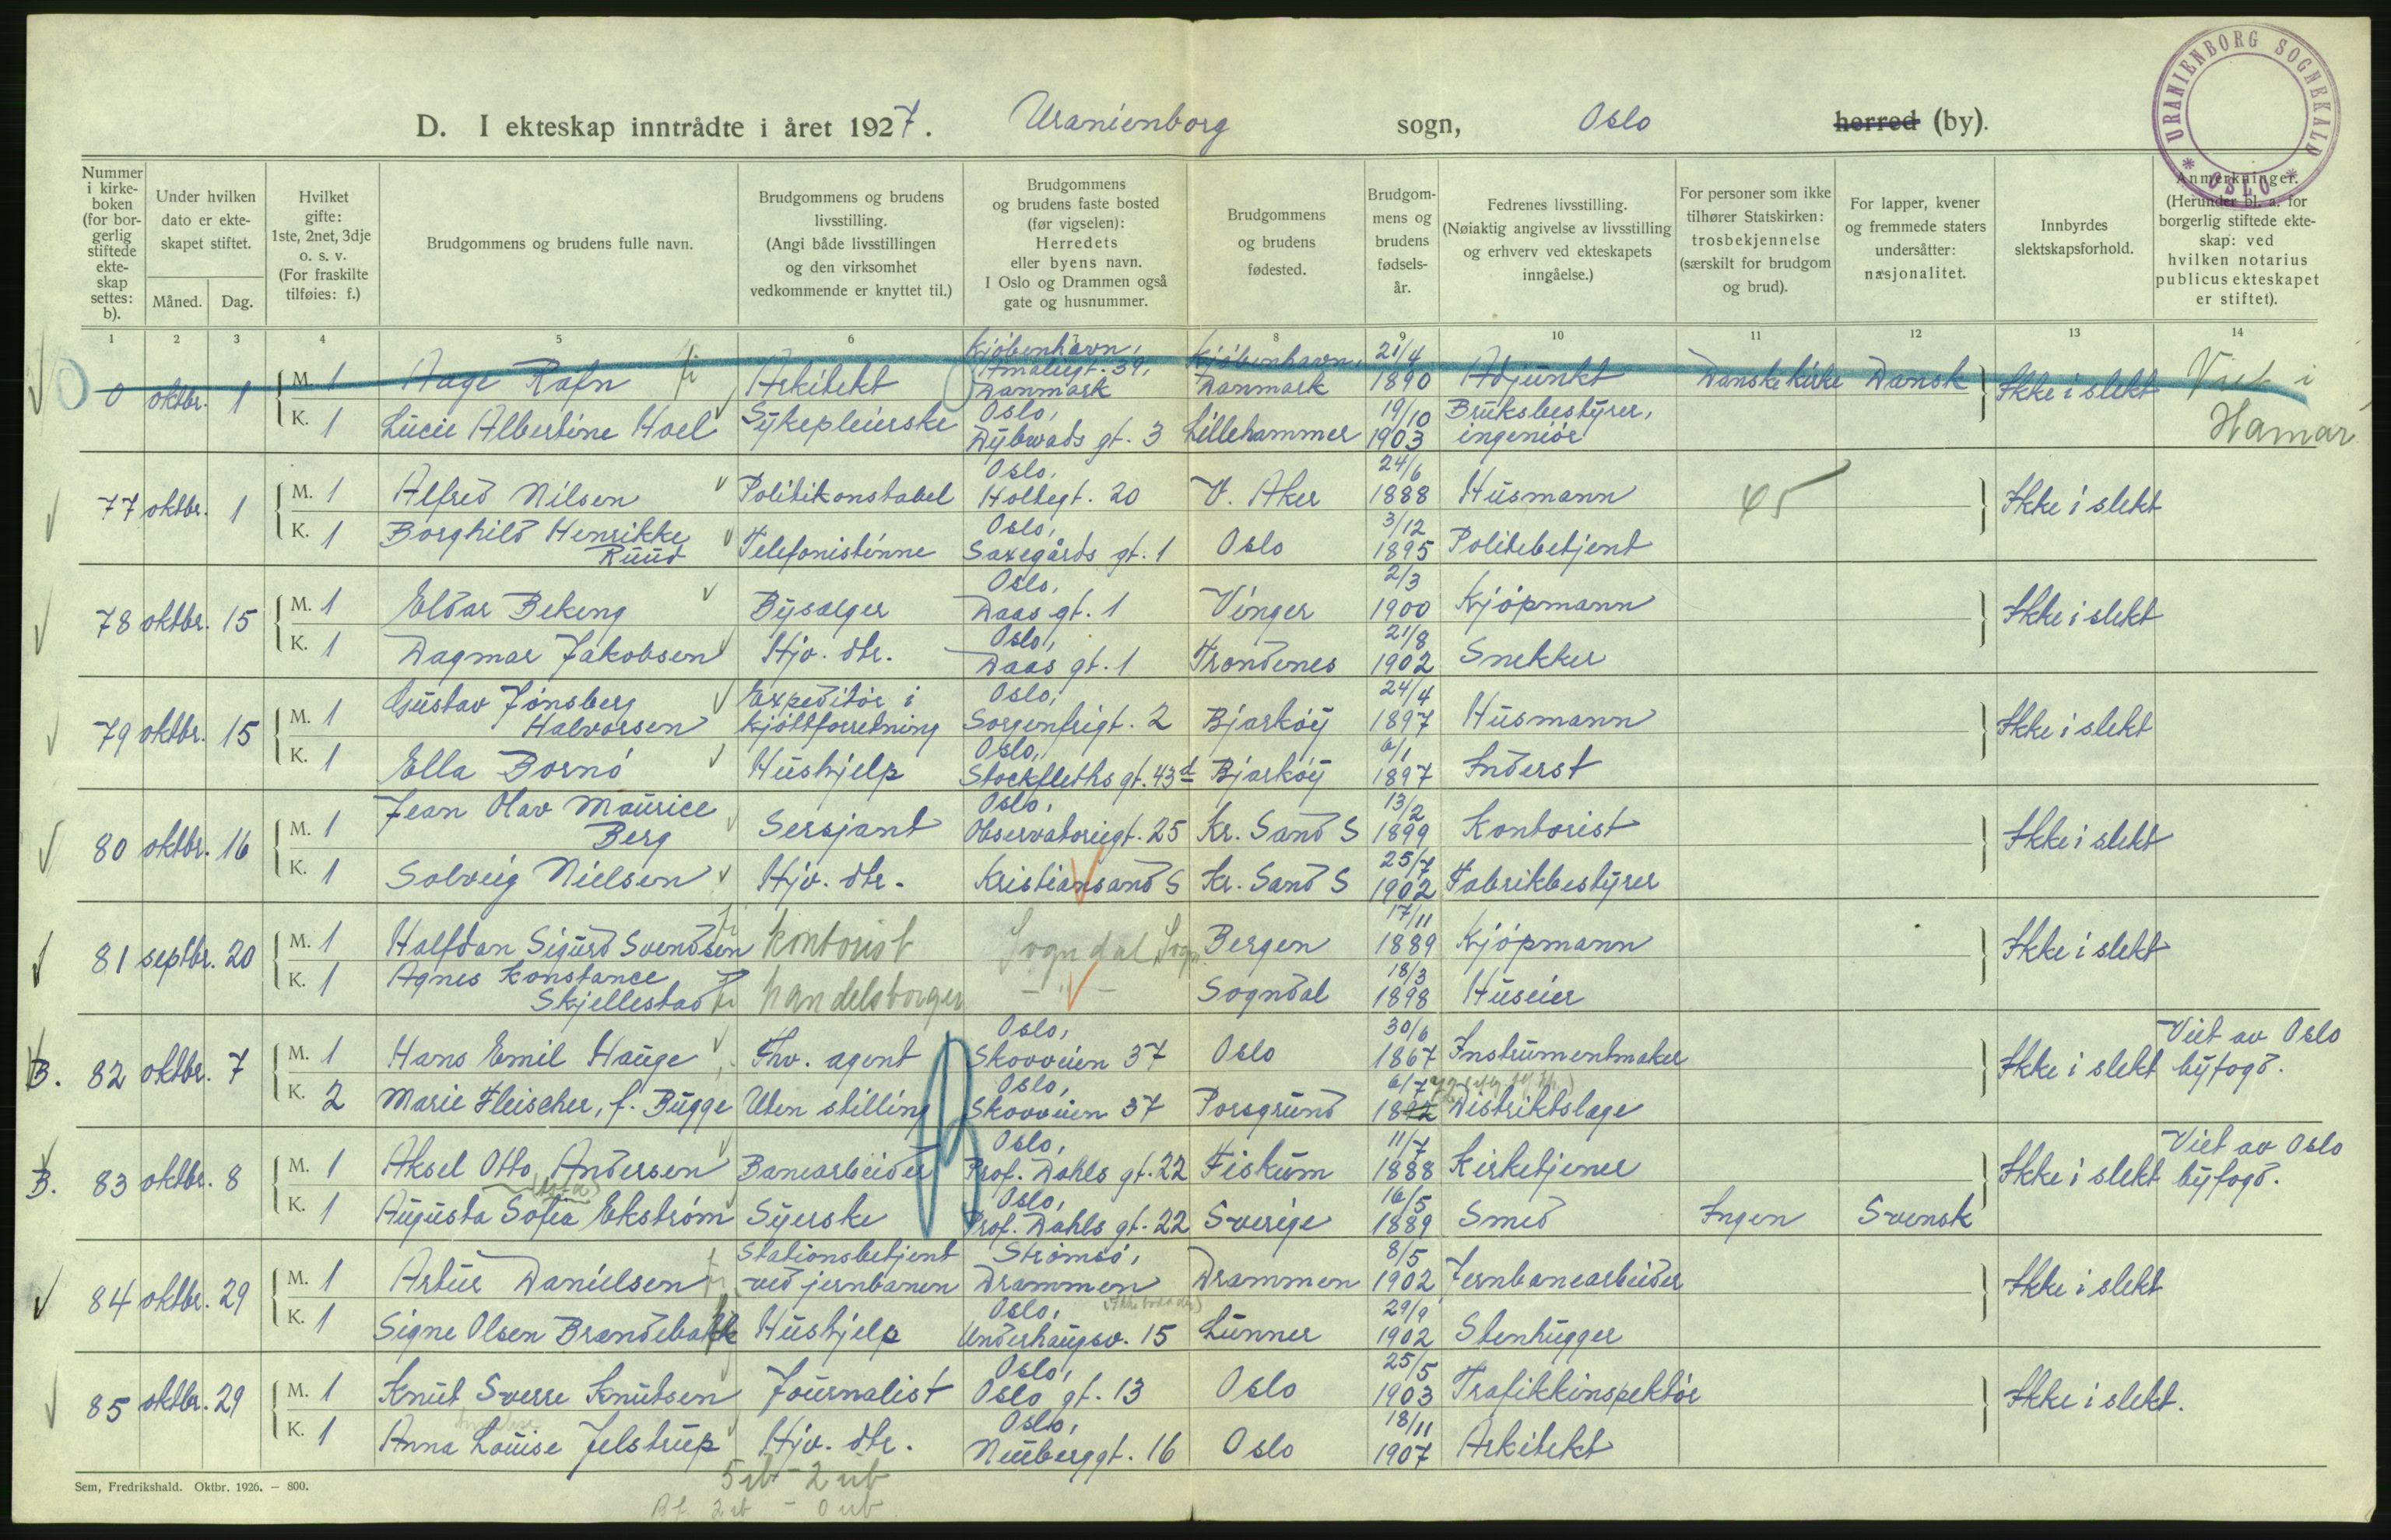 D. I ekteskap inntrådte i året 1927. Uranienborg sogn, Oslo herred (by).
URANIENBORG SOGNEKALD * OSLO *
Nummer i kirkeboken (for borgerlig stiftede ekteskap settes: b).
Under hvilken dato er ekteskapet stiftet.
Måned. Dag.
Hvilket gifte: 1ste, 2net, 3dje o. s. v. (For fraskilte tilføies: f.)
Brudgommens og brudens fulle navn.
Brudgommens og brudens livsstilling. (Angi både livsstillingen og den virksomhet vedkommende er knyttet til.)
Brudgommens og brudens faste bosted (før vigselen): Herredets eller byens navn. I Oslo og Drammen også gate og husnummer.
Brudgommens og brudens fødested.
Brudgommens og brudens fødselsår.
Fedrenes livsstilling. (Nøiaktig angivelse av livsstilling og erhverv ved ekteskapets inngåelse.)
For personer som ikke tilhører Statskirken: trosbekjennelse (særskilt for brudgom og brud).
For lapper, kvener og fremmede staters undersåtter: nasjonalitet.
Innbyrdes slektskapsforhold.
Anmerkninger. (Herunder bl. a. for borgerlig stiftede ekteskap: ved hvilken notarius publicus ekteskapet er stiftet).
1 2 3 4 5 6 8 9 10 11 12 13 14
0 oktbr. 1 M. 1 Aage Rafn Arkitekt Kjöbenhavn, Amaliegt. 39, Danmark Kjöbenhavn, Danmark 21/4 1890 Adjunkt Danske kirke Dansk Ikke i slekt Viet i Hamar
K. 1 Lucie Albertine Hoel Sykepleierske Oslo, Dybwads gt. 3 Lillehammer 19/10 1903 Bruksbestyrer, ingeniör
77 oktbr. 1 M. 1 Alfred Nilsen Politikonstabel Oslo, Holtegt. 20 V. Aker 24/6 1888 Husmann 45 Ikke i slekt
K. 1 Borghild Henrikke Ruud Telefonistinne Oslo, Saxegårds gt. 1 Oslo 3/12 1895 Politibetjent
78 oktbr. 15 M. 1 Eldar Bekeng Bysælger Oslo, Daas gt. 1 Vinger 2/3 1900 Kjöpmann Ikke i slekt
K. 1 Dagmar Jakobsen Hjv. dtr. Oslo, Daas gt. 1 Trondenes 21/8 1902 Snekker
79 oktbr. 15 M. 1 Gustav Jönsberg Halvorsen Expeditör i kjöttforretning Oslo, Sorgenfrigt. 2 Bjarköy 24/4 1897 Husmann Ikke i slekt
K. 1 Ella Bornö Hushjelp Oslo, Stockfleths gt. 43d Bjarköy 6/1 1897 Inderst
80 oktbr. 16 M. 1 Jean Olav Maurice Berg Sersjant Oslo, Observatoriegt. 25 Kr. Sand S 13/2 1899 Kontorist Ikke i slekt
K. 1 Solveig Nielsen Hjv. dtr. Kristiansand S Kr. Sand S 25/7 1902 Fabrikbestyrer
81 septbr. 20 M. 1 Halfdan Sigurd Svendsen kontorist Sogndal Sogn. Bergen 17/11 1889 Kjöpmann Ikke i slekt
K. 1 Agnes Konstance Skjellestad handelsborger — " — Sogndal 18/3 1898 Huseier
B. 82 oktbr. 7 M. 1 Hans Emil Hauge Fhv. agent Oslo, Skovveien 37 Oslo 30/6 1867 Instrumentmaker Ikke i slekt Viet av Oslo byfogd.
K. 2 Marie Fleischer, f. Bugge Uten stilling Oslo, Skovveien 37 Porsgrund 6/7 Distriktslæge
B. 83 oktbr. 8 M. 1 Aksel Otto Andersen Banearbeider Oslo, Prof. Dahls gt. 22 Fiskum 11/7 1888 Kirketjener Ikke i slekt Viet av Oslo byfogd.
K. 1 Augusta Sofia Ekström Syerske Oslo, Prof. Dahls gt. 22 Sverige 16/5 1889 Smed Ingen Svensk
84 oktbr. 29 M. 1 Artur Danielsen Stationsbetjent ved jernbanen Strömsö, Drammen Drammen 8/5 1902 Jernbanearbeider Ikke i slekt
K. 1 Signe Olsen Brændebakk Hushjelp Oslo, Underhaugsv. 15 Lunner 29/9 1902 Stenhugger
85 oktbr. 29 M. 1 Knut Sverre Knutsen Journalist Oslo, Oslo gt. 13 Oslo 25/5 1903 Trafikkinspektör Ikke i slekt.
K. 1 Anna Louise Jelstrup Hjv. dtr. Oslo, Neuberggt. 16 Oslo 18/11 1907 Arkitekt
Sem, Fredrikshald. Oktbr. 1926. — 800.